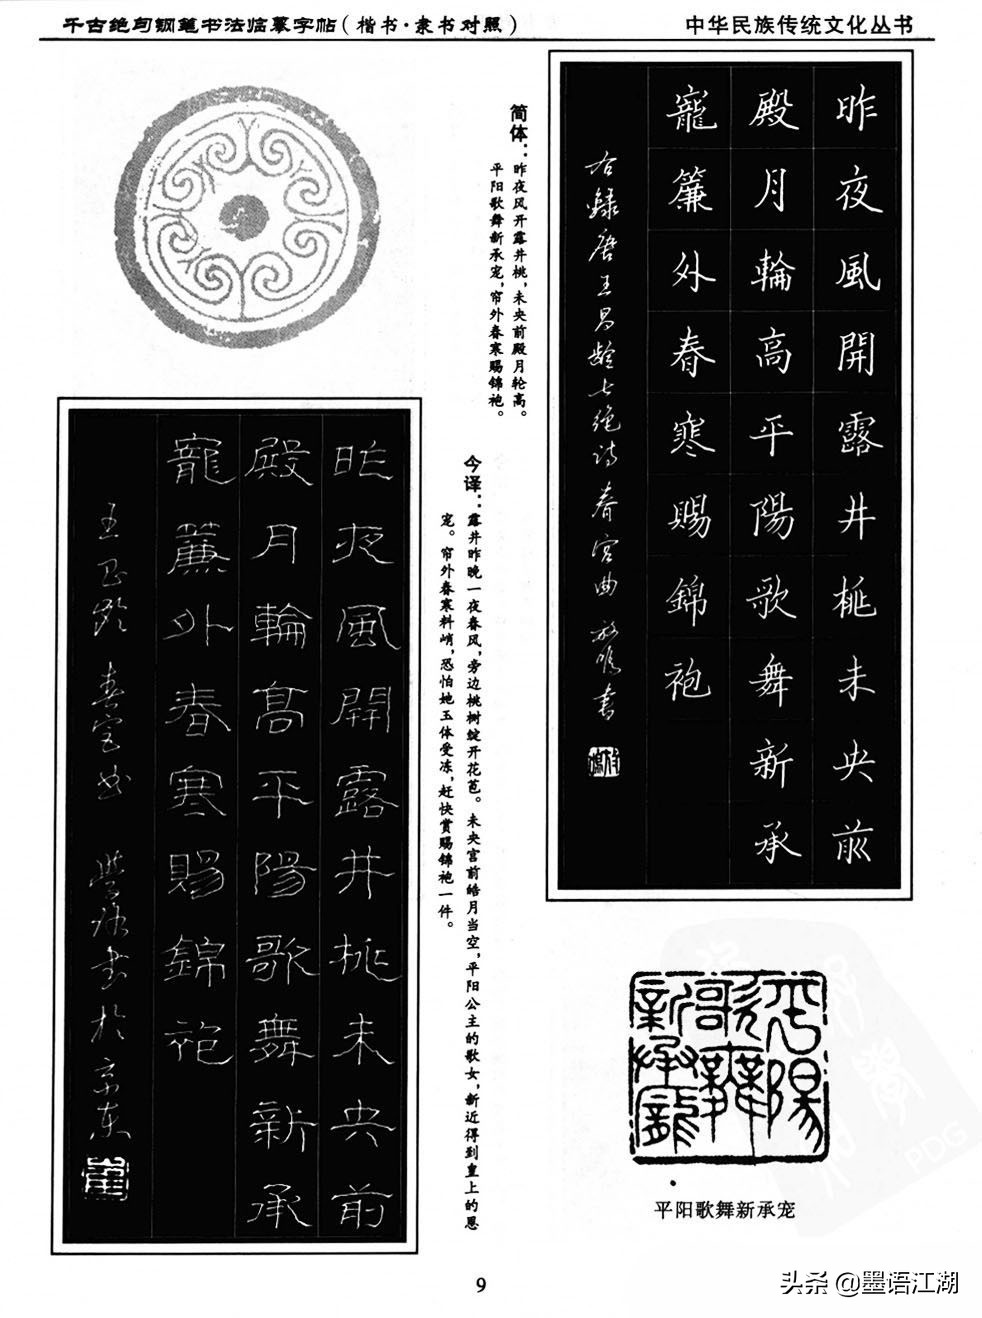 千古绝句钢笔书法临摹字帖（楷书·隶书对照）
中华民族传统文化丛书
昨夜風開露井桃未央前
殿月輪高平陽歌舞新承
寵簾外春寒賜錦袍
右錄唐王昌齡七绝诗春宫曲
简体：昨夜风开露井桃，未央前殿月轮高。
平阳歌舞新承宠，帘外春寒赐锦袍。
今译：露井昨晚一夜春风，旁边桃树绽开花苞。未央宫前皓月当空，平阳公主的歌女，新近得到皇上的恩
宠。帘外春寒料峭，恐怕她玉体受冻，赶快赏赐锦袍一件。
昨夜風開露井桃未央前
殿月輪高平陽歌舞新承
寵簾外春寒賜錦袍
王昌龄春宫曲
平陽
歌舞
新承寵
平阳歌舞新承宠
9
PDG
头条@墨语江湖